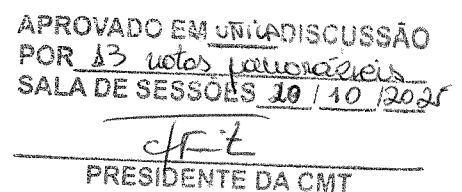 APROVADO EM única DISCUSSÃO
POR 13 votos favoráveis
SALA DE SESSÕES 20 / 10 / 2025
PRESIDENTE DA CMT